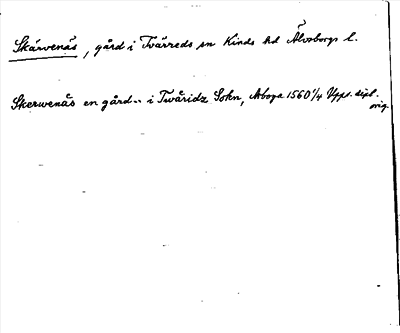 Skärvenäs, gård i Tvärreds sn Kinds hd Älvsborgs l.
Skerwenäs en gård.. i Twäridz Sokn, Arboga 1560 1/4 Uppt. dipl.
orig.